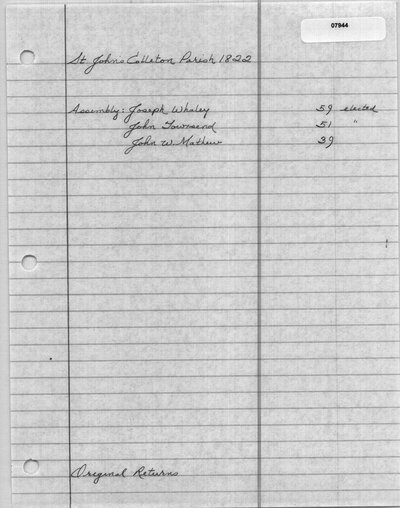 07944
St. Johns Colleton Parish 1822
Assembly: Joseph Whaley 59 elected
John Townsend 51 "
John W. Mathew 39
Original Returns